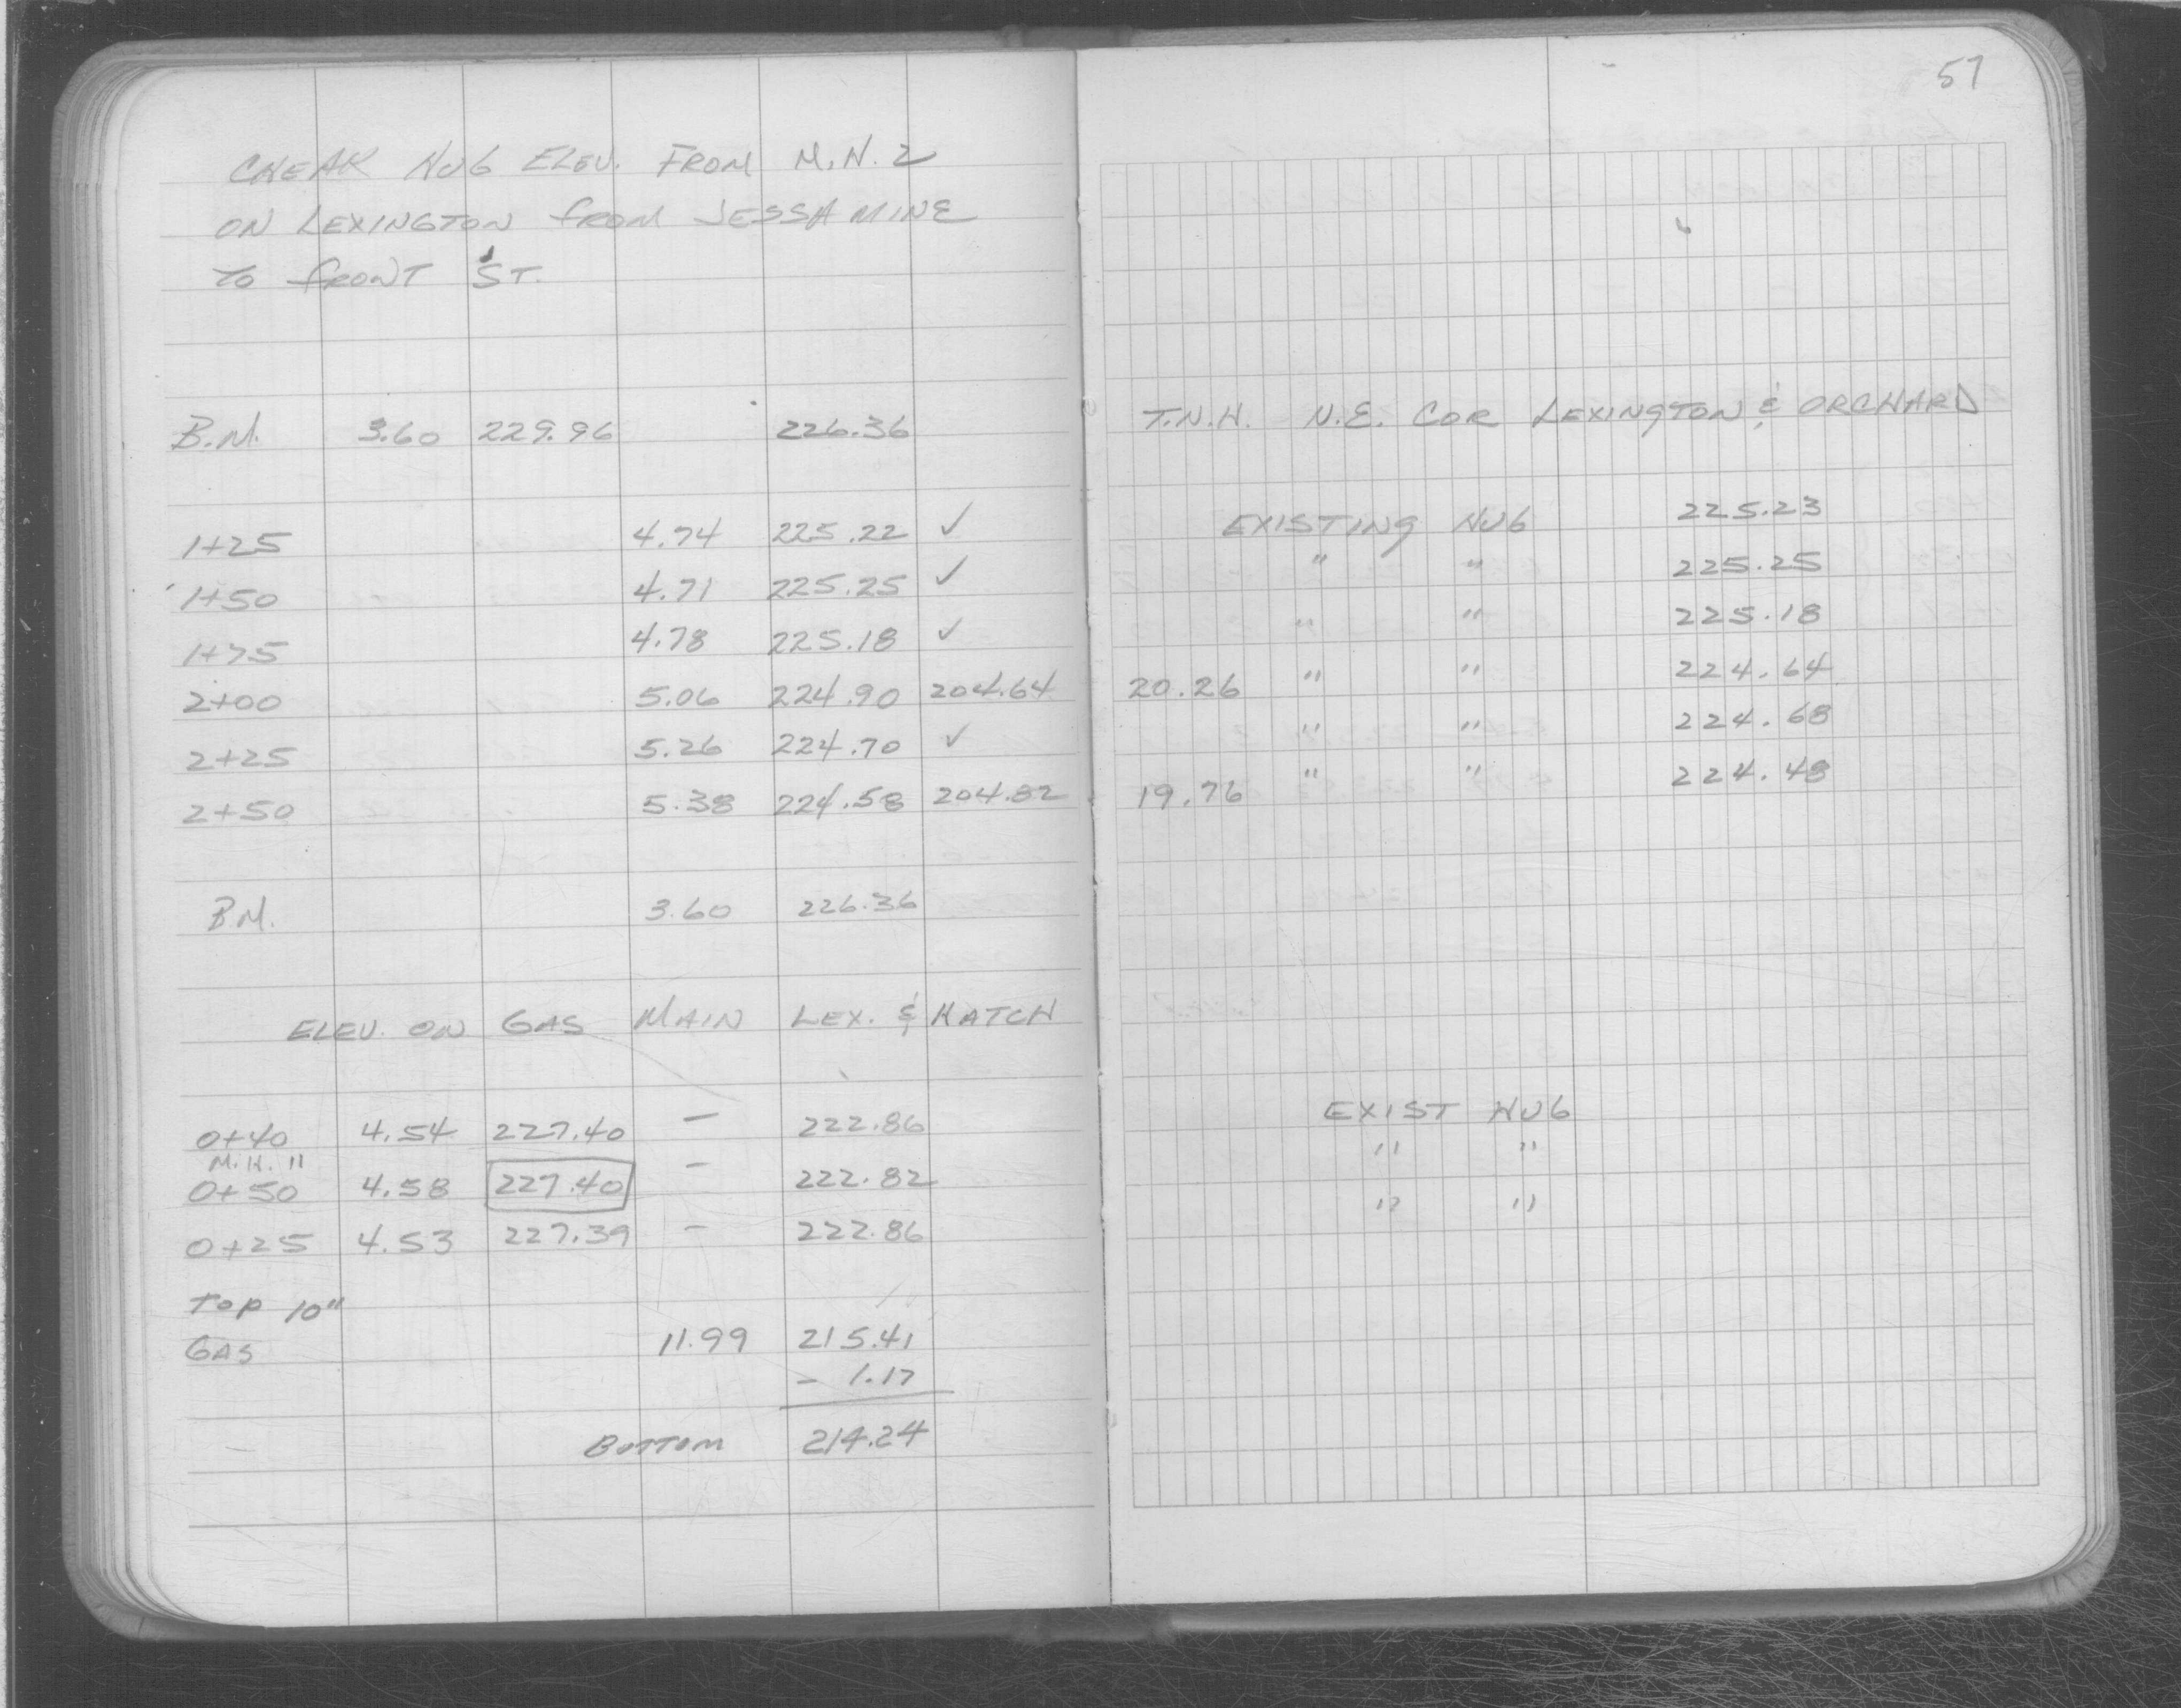 57
CHEAK HUB ELEV. FROM M.H. 2
ON LEXINGTON FROM JESSAMINE
TO FRONT ST.
B.M. 3.60 229.96 226.36 T.N.H. N.E. COR LEXINGTON & ORCHARD
1+25 4.74 225.22 ✓ EXISTING HUB 225.23
1+50 4.71 225.25 ✓ " " 225.25
1+75 4.78 225.18 ✓ " " 225.18
2+00 5.06 224.90 204.64 20.26 " " 224.64
2+25 5.26 224.70 ✓ " " 224.68
2+50 5.38 224.58 204.82 19.76 " " 224.48
B.M. 3.60 226.36
ELEV. ON GAS MAIN LEX. & HATCH
0+40 4.54 227.40 – 222.86 EXIST HUB
M.H. 11 " "
0+50 4.58 227.40 – 222.82
0+25 4.53 227.39 – 222.86 " "
TOP 10"
GAS 11.99 215.41
– 1.17
BOTTOM 214.24